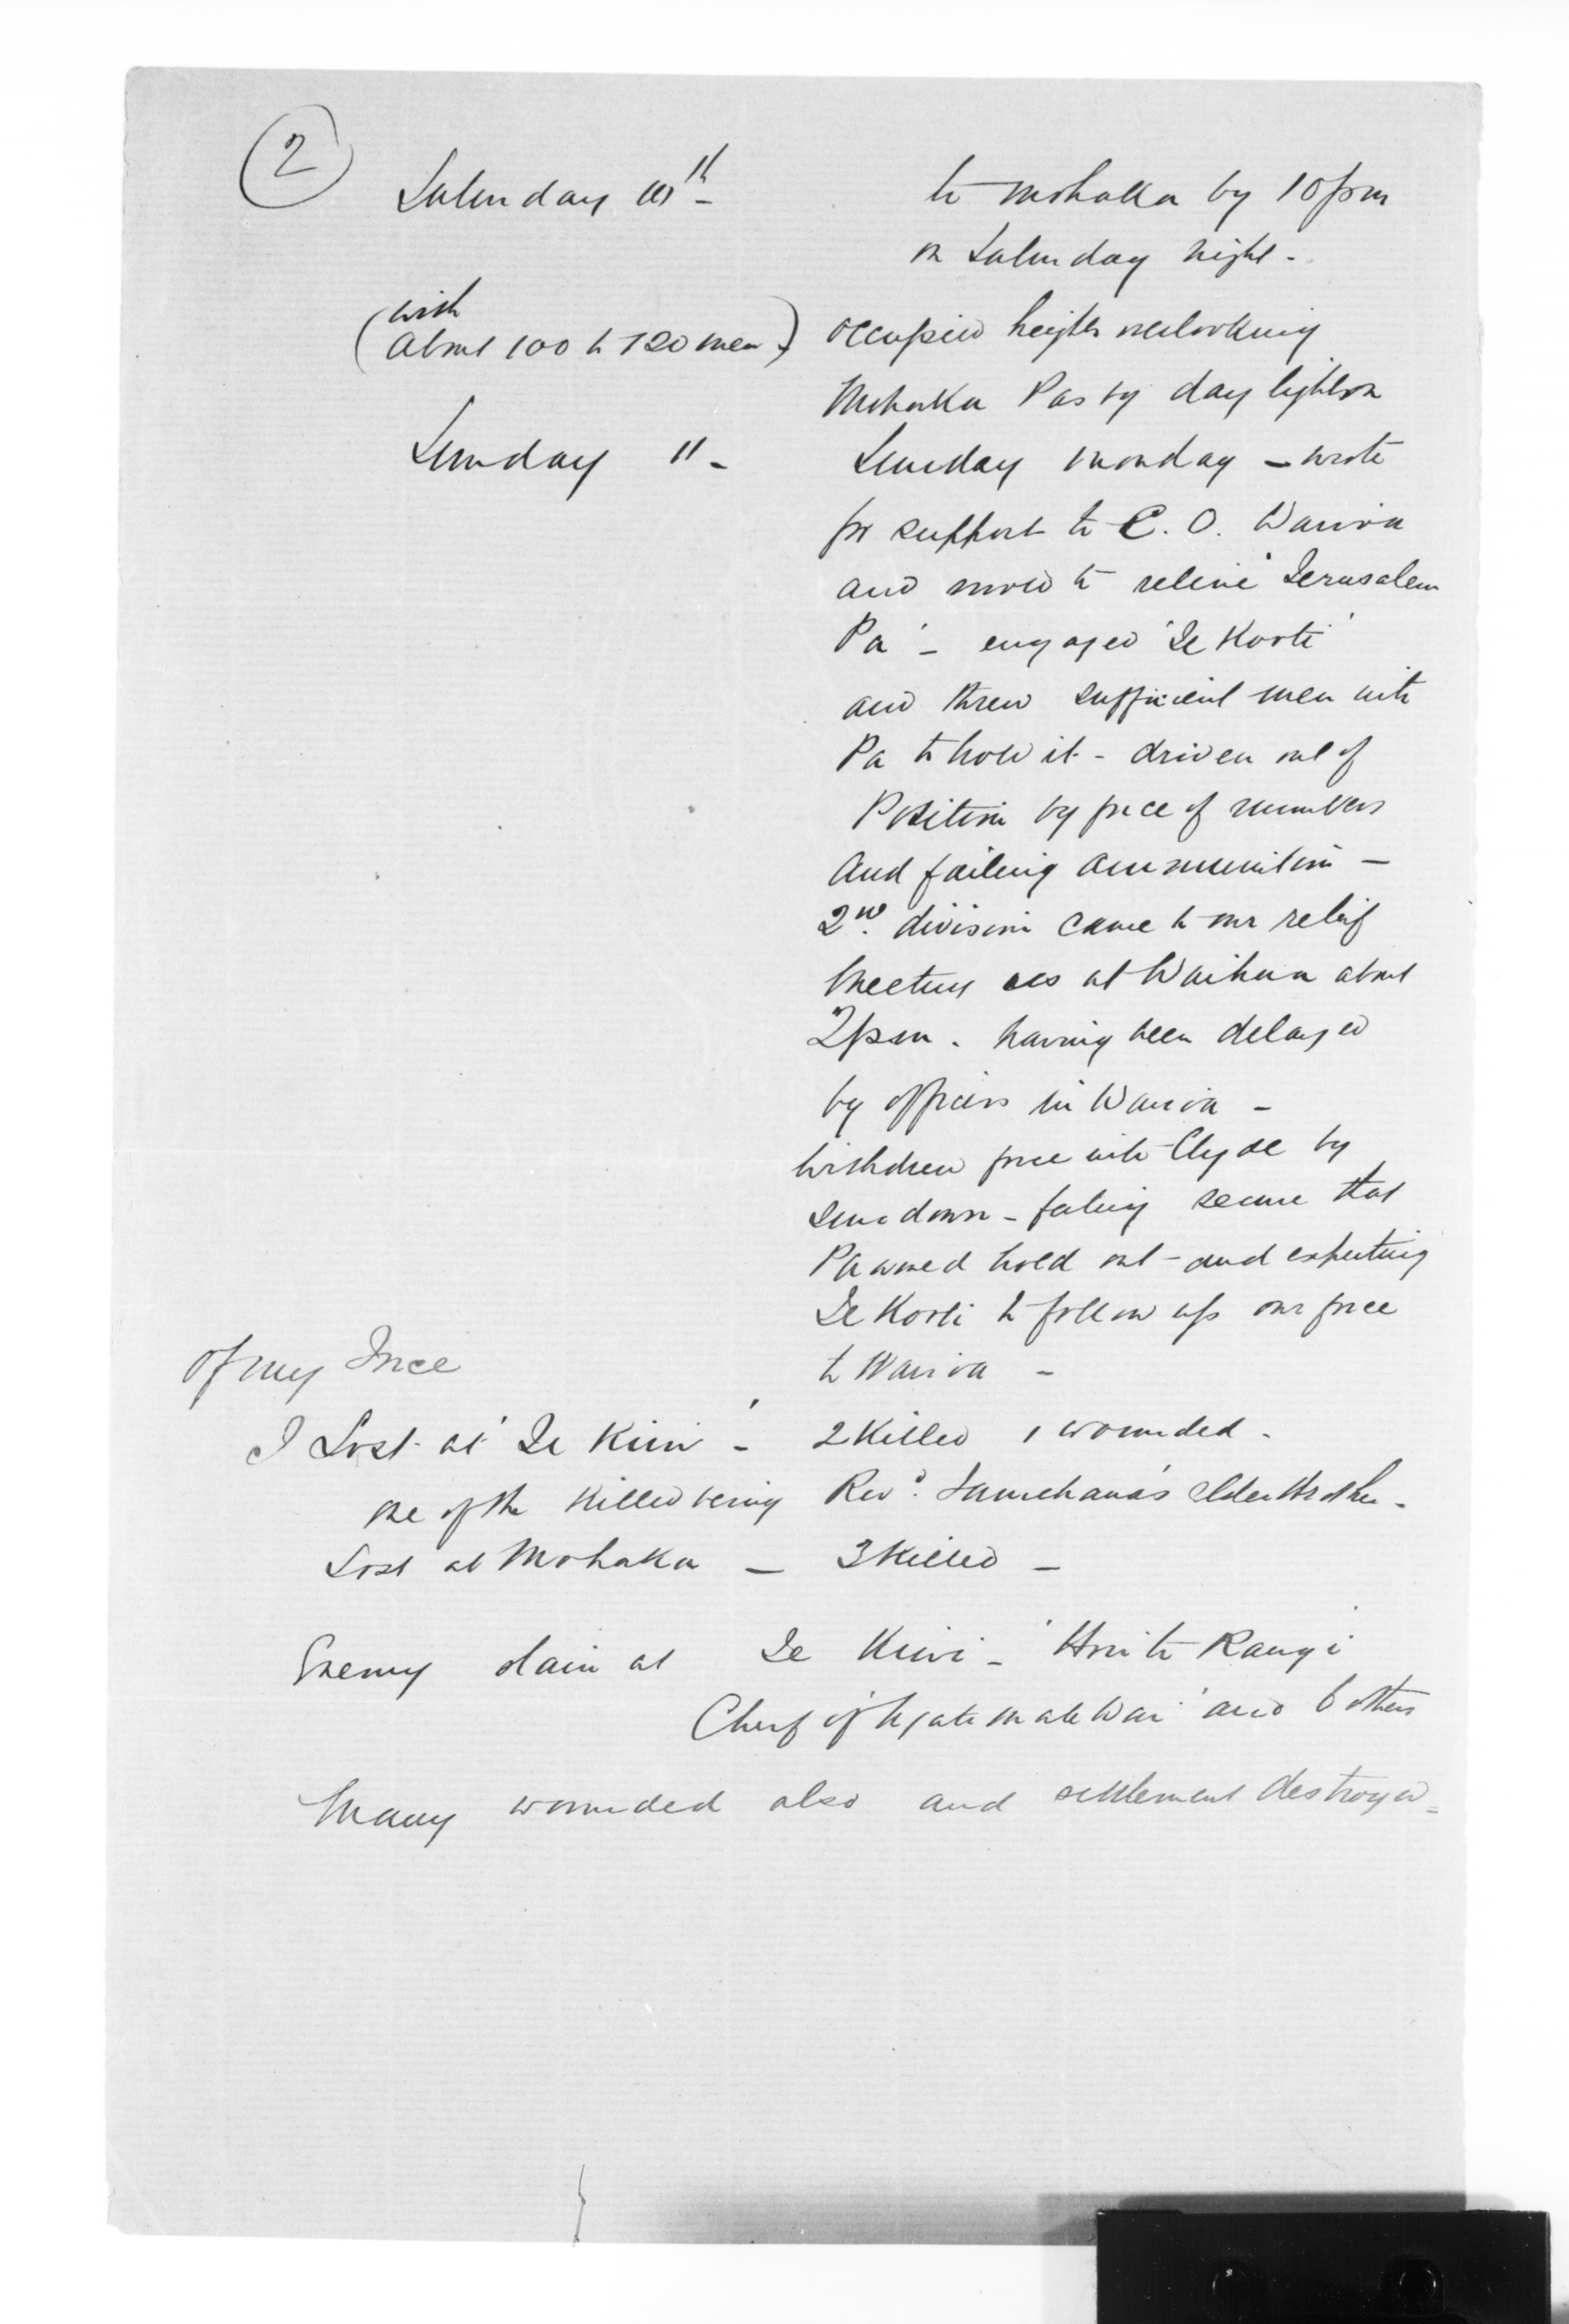 2
Saturday 10th - to Mohaka by 10pm
on Saturday night -
(with
About 100 to 120 men) occupied heights overlooking
Mohaka Pas by day light on
Sunday 11 - Sunday monday - wrote
for support to C. O. Wairoa
and moved to relieve 'Jerusalem
Pa' - engaged 'Te Kooti'
and threw sufficient men into
Pa to hold it - driven out of
Position by force of numbers
and failing ammunition -
2nd. division came to our relief
meeting us at Waihua about
2pm. having been delayed
by officers in Wairoa -
Withdrew force into Clyde by
sundown - feeling secure that
Pa would hold out - and expecting
Te Kooti to follow up our force
to Wairoa -
Of my Force
I Lost at 'Te Kiwi' - 2 Killed 1 wounded -
one of the Killed being Revd. Tamehana's elder brother -
Lost at Mohaka - 3 Killed -
Enemy slain at Te Kiwi - 'Honi te Rangi
Chief of Ngatimatewai' and 6 others
Many wounded also and settlement destroyed =